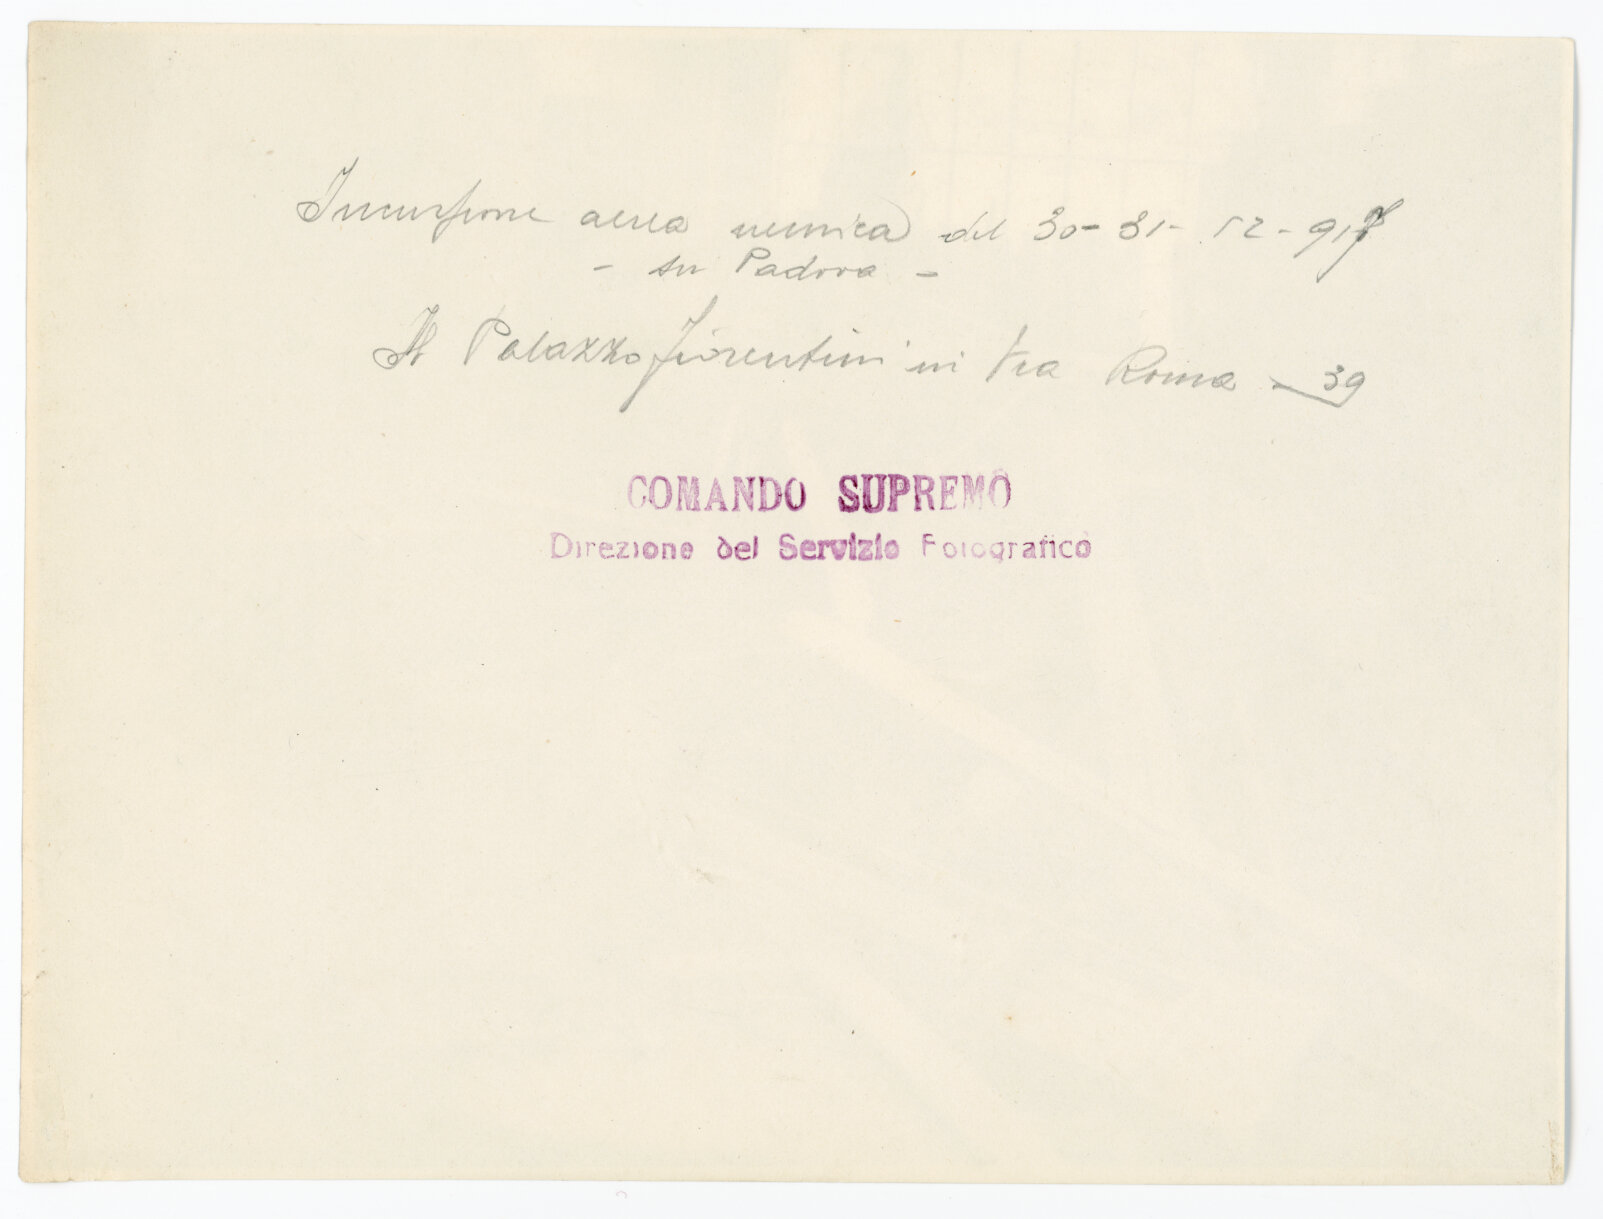 Incursione aerea nemica del 30-31-12-917
- su Padova -
Il Palazzo Fiorentini in Via Roma - 39
COMANDO SUPREMO
Direzione del Servizio Fotografico